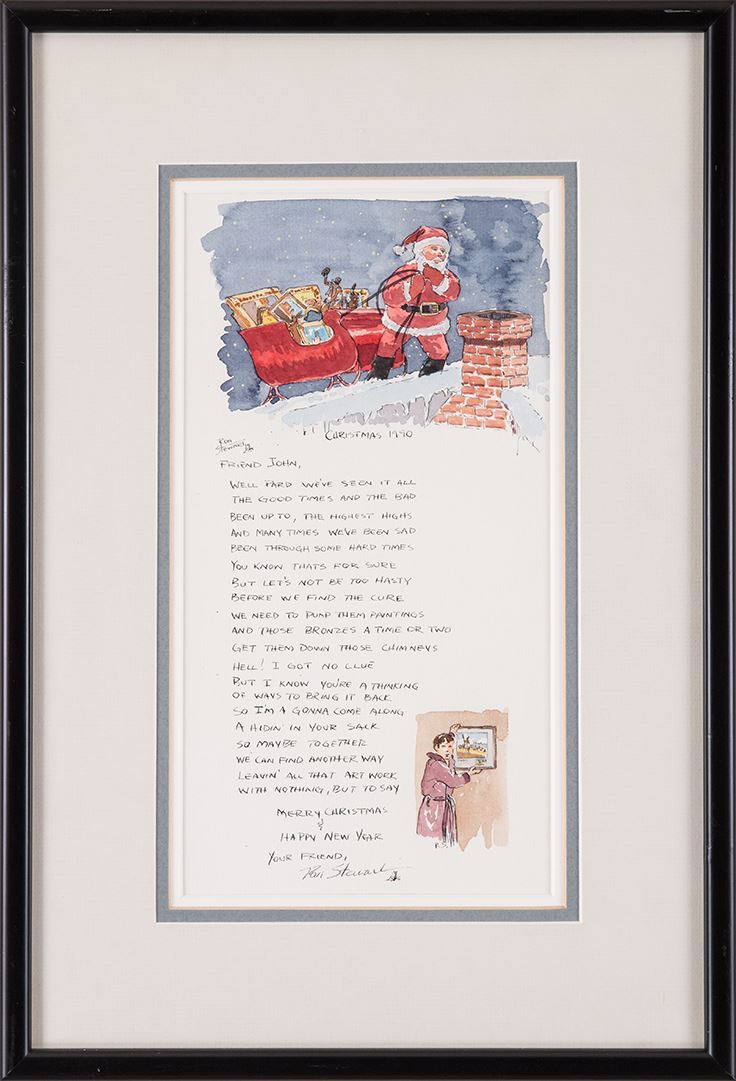 CHRISTMAS 1990
Ron
Stewart
FRIEND JOHN,
WELL PARD WE'VE SEEN IT ALL
THE GOOD TIMES AND THE BAD
BEEN UP TO, THE HIGHEST HIGHS
AND MANY TIMES WE'VE BEEN SAD
BEEN THROUGH SOME HARD TIMES
YOU KNOW THATS FOR SURE
BUT LET'S NOT BE TOO HASTY
BEFORE WE FIND THE CURE
WE NEED TO PUMP THEM PAINTINGS
AND THOSE BRONZES A TIME OR TWO
GET THEM DOWN THOSE CHIMNEYS
HELL! I GOT NO CLUE
BUT I KNOW YOU'RE A THINKING
OF WAYS TO BRING IT BACK
SO I'M A GONNA COME ALONG
A HIDIN' IN YOUR SACK
SO MAYBE TOGETHER
WE CAN FIND ANOTHER WAY
LEAVIN' ALL THAT ART WORK
WITH NOTHING, BUT TO SAY
MERRY CHRISTMAS
&
HAPPY NEW YEAR
YOUR FRIEND,
Ron Stewart
R.S.